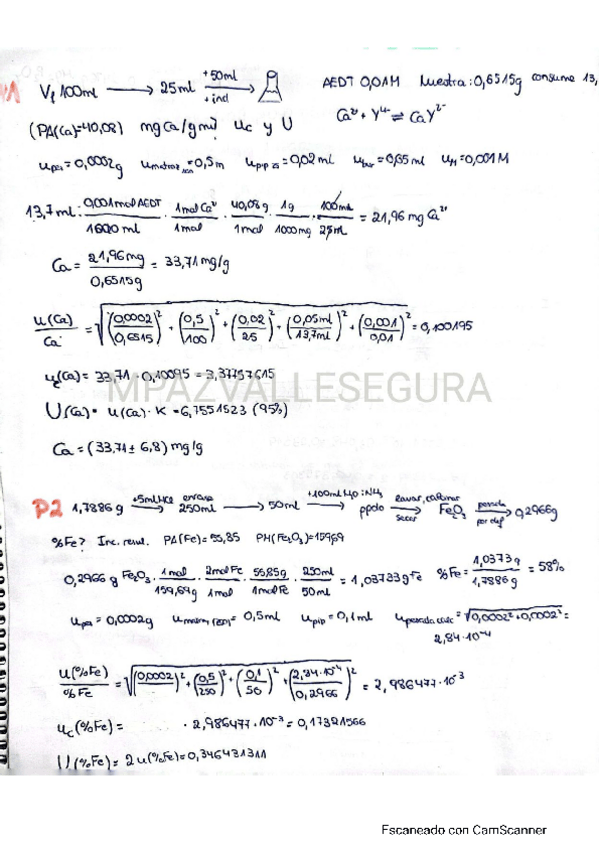 V, 100ml → 25ml +50ml +ind AEDT 0,01M Muestra: 0,6515g consume 13,
Ca²⁺ + Y⁴⁻ ⇌ CaY²⁻
(PA(Ca)=40,08) mgCa/gm? uc y U
u = 0,0002g u matraz = 0,5m u pip 25 = 0,02 ml u bur = 0,05 ml u M = 0,001M
13,7ml · 0,001mol AEDT / 1000 ml · 1mol Ca²⁺ / 1mol · 40,08g / 1mol · 1g / 1000mg · 100ml / 25ml = 21,96 mg Ca²⁺
Ca = 21,96mg / 0,6515g = 33,71 mg/g
u(Ca) / Ca = √((0,0002 / 0,6515)² + (0,5 / 100)² + (0,02 / 25)² + (0,05ml / 13,7ml)² + (0,001 / 0,01)²) = 0,100195
uc(Ca) = 33,71 · 0,10095 = 3,37757615
MPAZVALLESEGURA
U(Ca) = u(Ca) · K = 6,7551523 (95%)
Ca = (33,71 ± 6,8) mg/g
P2 1,7886 g +5ml HCl → enrase 250ml → 50ml +100ml H₂O:NH₃ → ppdo lavar, calcinar → secar Fe₂O₃ pesada → por dif 0,2966g
%Fe? Inc. resul. PA(Fe)=55,85 PM(Fe₂O₃)=159,69
0,2966 g Fe₂O₃ · 1mol / 159,69g · 2mol Fe / 1mol · 55,85g / 1mol Fe · 250ml / 50ml = 1,03733g Fe %Fe = 1,0373g / 1,7886g = 58%
u = 0,0002g u matraz (250) = 0,5ml u pip = 0,1 ml u pesada calc = √0,0002² + 0,0002² =
2,84·10⁻⁴
u(%Fe) / %Fe = √((0,0002)² + (0,5 / 250)² + (0,1 / 50)² + (2,84·10⁻⁴ / 0,2966)²) = 2,986477·10⁻³
uc(%Fe) = · 2,986477·10⁻³ = 0,17321566
U(%Fe) = 2 u(%Fe) = 0,346431311
Escaneado con CamScanner